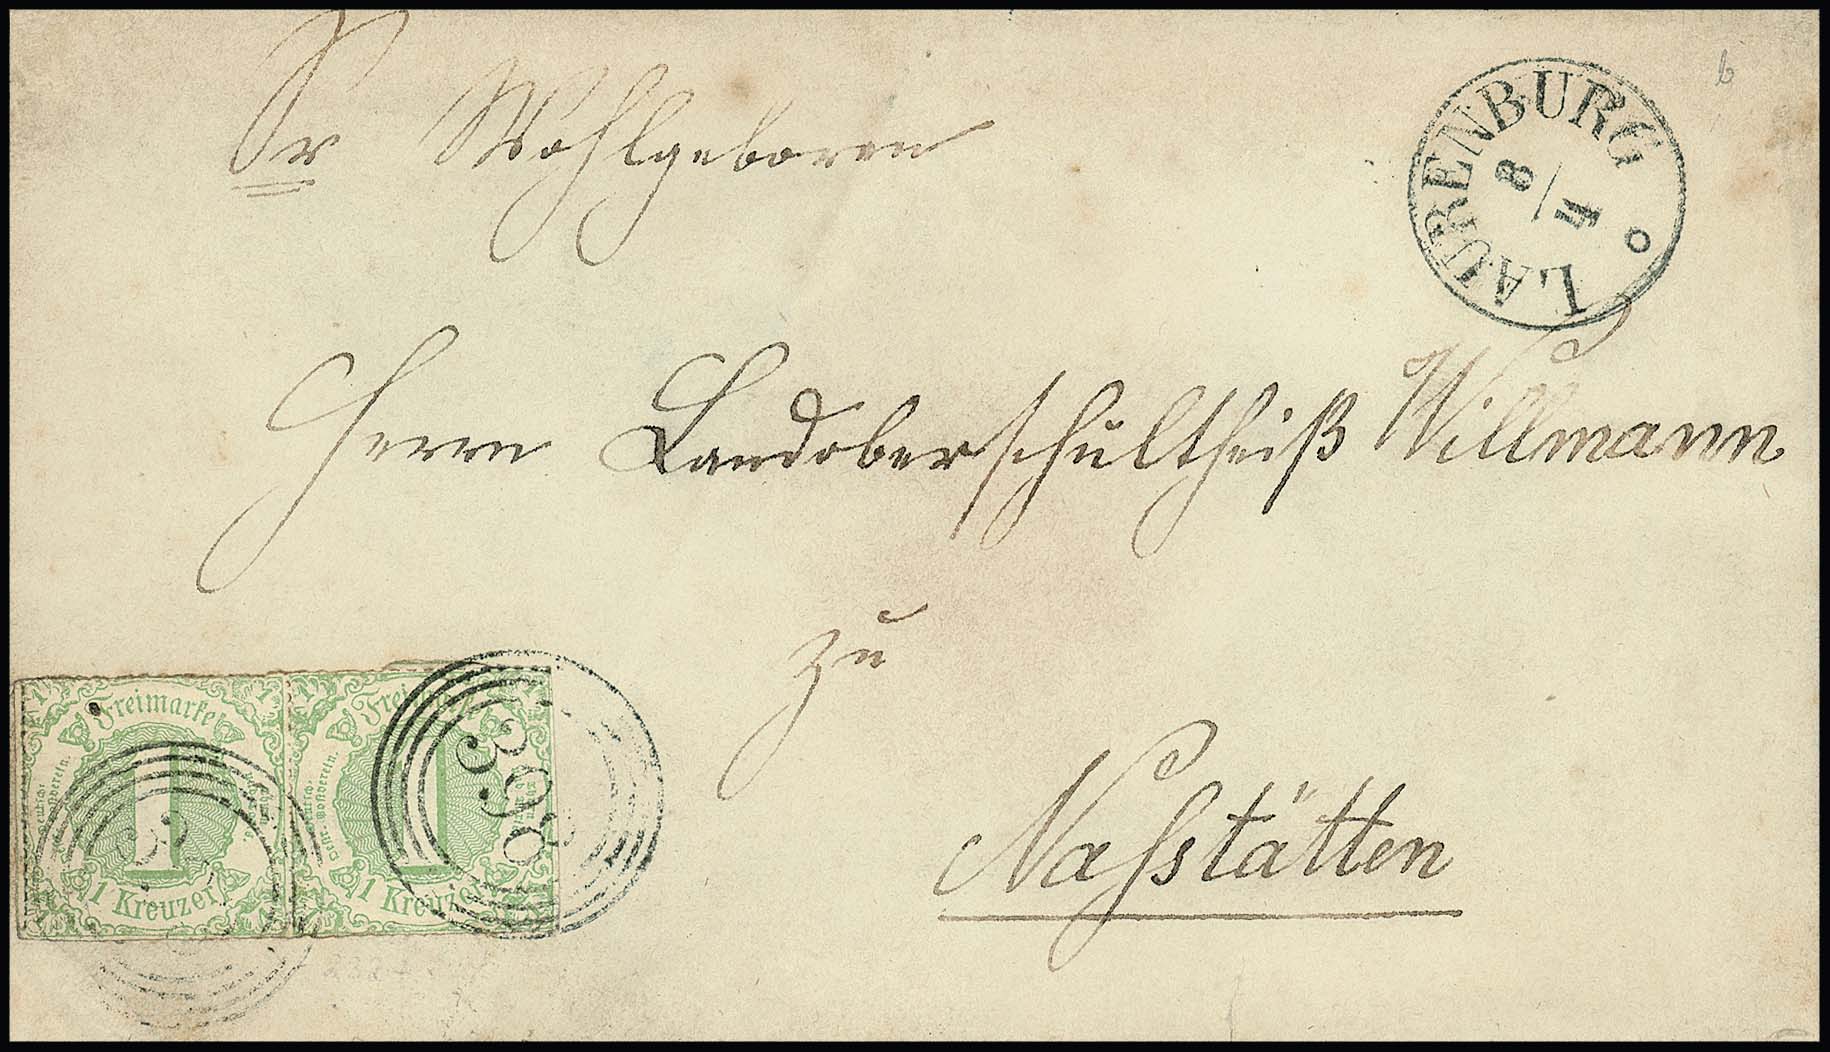 Sr Wohlgeboren
LAURENBURG
8/4
b
Herrn Landoberschultheiß Willmann
zu
Naßstätten
Freimarke
1
1 Kreuzer
Freimarke
1
1 Kreuzer
398